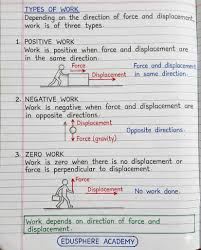 TYPES OF WORK
Depending on the direction of force and displacement,
work is of three types.
1. POSITIVE WORK
Work is positive when force and displacement are
in the same direction.
Force
Displacement
Force and displacement
in same direction.
2. NEGATIVE WORK
Work is negative when force and displacement are
in opposite directions.
Displacement
Force (gravity)
Opposite directions.
3. ZERO WORK
Work is zero when there is no displacement or
force is perpendicular to displacement.
Force
Displacement
No work done.
Work depends on direction of force and
displacement.
EDUSPHERE ACADEMY